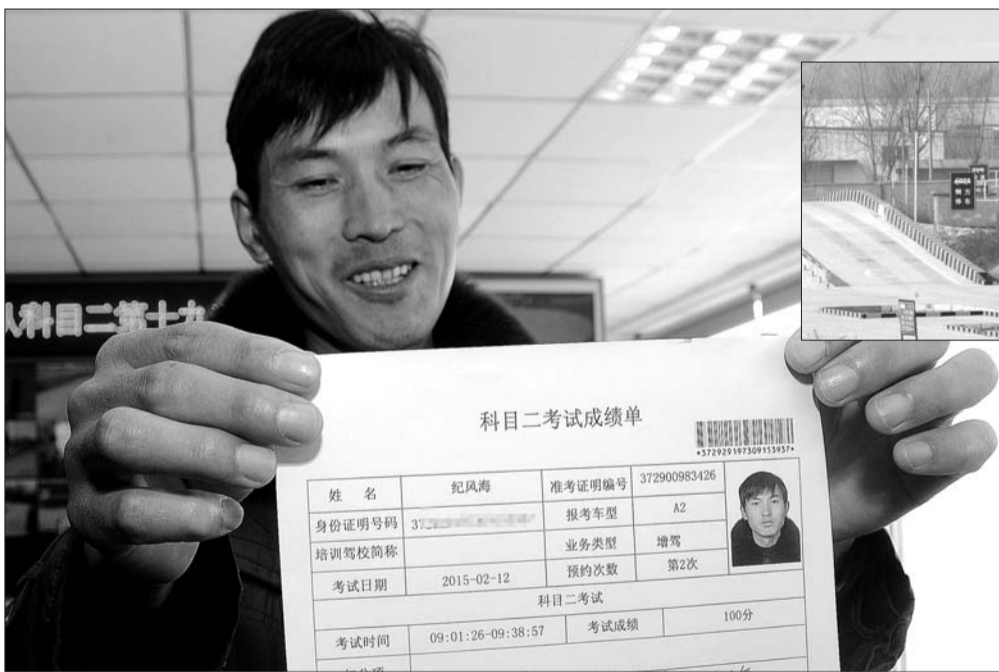 队科目二第十九
科目二考试成绩单
姓 名 纪风海 准考证明编号 372900983426
身份证明号码 37 报考车型 A2
培训驾校简称 业务类型 增驾
考试日期 2015-02-12 预约次数 第2次
科目二考试
考试时间 09:01:26-09:38:57 考试成绩 100分